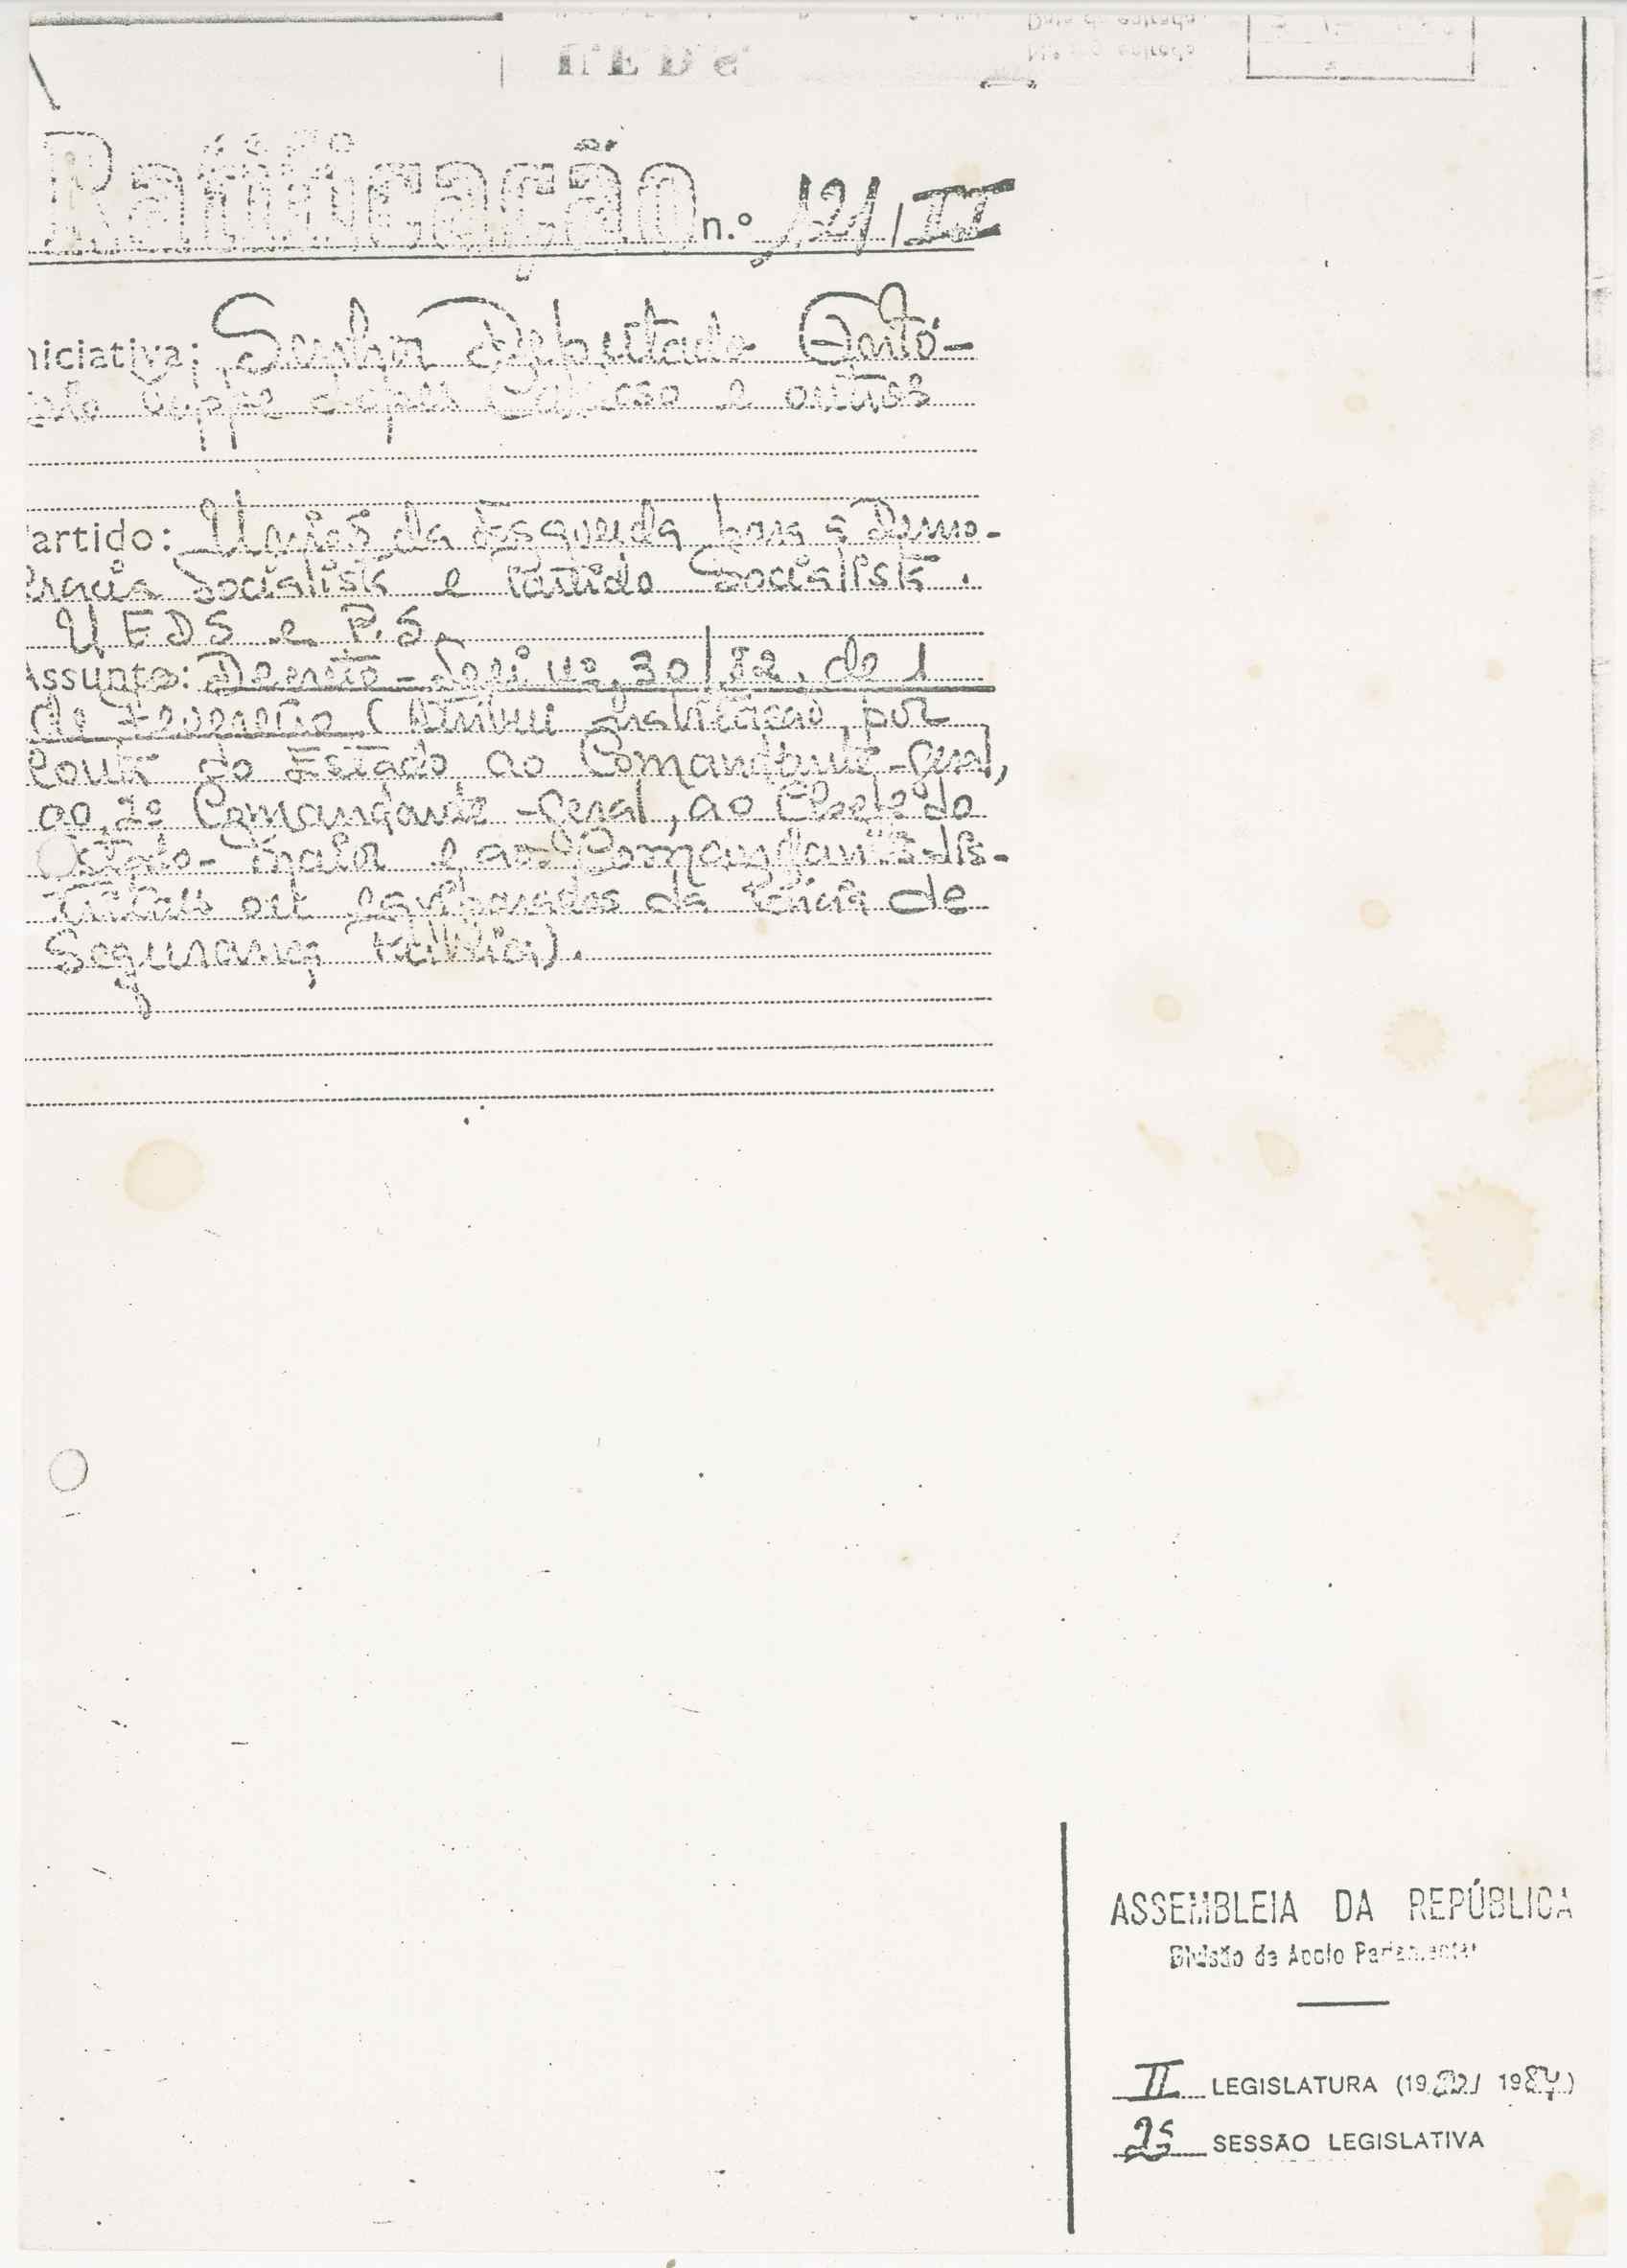 Data de entrada
N.º de entrada
Ratificação n.º 121/II
niciativa: Senhor Deputado Antó-
nio Poppe Lopes Cardoso e outros
artido: União da Esquerda para a Demo-
cracia Socialista e Partido Socialista.
UEDS e P.S.
Assunto: Decreto-Lei nº 30/82, de 1
de Fevereiro (Atribui habitação, por
conta do Estado ao Comandante-Geral,
ao 2º Comandante-Geral, ao Chefe do
Estado-Maior e aos Comandantes dis-
tritais ou equiparados da Polícia de
Segurança Pública).
ASSEMBLEIA DA REPÚBLICA
Divisão de Apoio Parlamentar
II LEGISLATURA (1980/ 1984)
2ª SESSÃO LEGISLATIVA